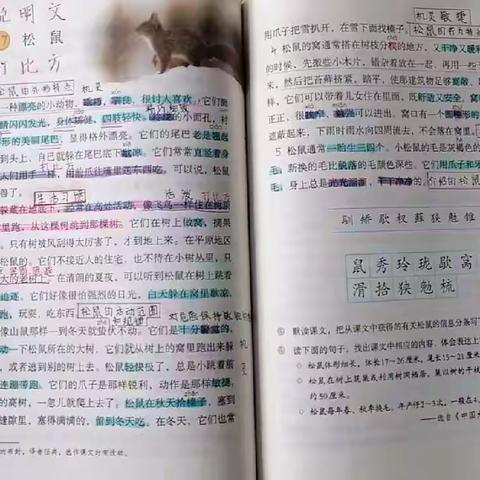 说明文
松鼠
打比方
一种漂亮的小动物,乖巧,驯良,很讨人喜欢。它们面
睛闪闪发光,身体矫健,四肢轻快
的小面孔,衬
形的美丽尾巴,显得格外漂亮。它们的尾巴老是翘起
到头上,自己就躲在尾巴底下歇凉。它们常常直竖着身
用前爪往嘴里送东西吃。可以说,松鼠
得了。
生活习惯
躲藏在地底下,经常在高处活动,像飞鸟一样住在树顶
里跑,从这棵树跳到那棵树。它们在树上做窝,摘果
只有树被风刮得太厉害了,才到地上来。在平原地区
松鼠的。它们不接近人的住宅,也不待在小树丛里,只
大的老树上。在清朗的夏夜,可以听到松鼠在树上跳着
追逐。它们好像很怕强烈的日光,白天躲在窝里歇凉,
跑,玩耍,吃东西
松鼠的活动范围
像山鼠那样一到冬天就蛰伏不动。它们是十分警觉的,
动一下松鼠所在的大树,它们就从树上的窝里跑出来躲
或者逃到别的树上去。松鼠轻快极了,总是小跳着前
连蹦带跑。它们的爪子是那样锐利,动作是那样敏捷,
的高树,一忽儿就爬上去了。松鼠在秋天拾榛子,塞到
缝隙里,塞得满满的,留到冬天吃。在冬天,它们也常
机灵 敏捷
用爪子把雪扒开,在雪下面找榛子。
4 松鼠的窝通常搭在树枝分杈的地方,又干净又暖和
的时候,先搬些小木片,错杂着放在一起,再用一些干
来,然后把苔藓挤紧,踏平,使那建筑物足够宽敞
它们可以带着儿女住在里面,既舒适又安全。窝
正正,很狭窄,勉强可以进出。窝口有一个圆锥形的
遮蔽起来,下雨时雨水向四周流去,不会落在窝里。
5 松鼠通常一胎生三四个。小松鼠的毛是灰褐色的
毛。新换的毛比脱落的毛颜色深些。它们用爪子和牙
毛,身上总是光光溜溜、干干净净的。
驯 矫 歇 杈 藓 狭 勉 锥
鼠 秀 玲 珑 歇 窝
滑 拾 狭 勉 梳
默读课文,把从课文中获得的有关松鼠的信息分条写
读下面的句子,找出课文中相应的内容,体会表达上
○ 松鼠体形细长,体长17~26厘米,尾长15~21厘
○ 松鼠在树上筑巢或利用树洞栖居,巢以树的干枝
约50厘米。
○ 松鼠每年春、秋季换毛。年产仔2~3次,一般在4、
——选自《中国大